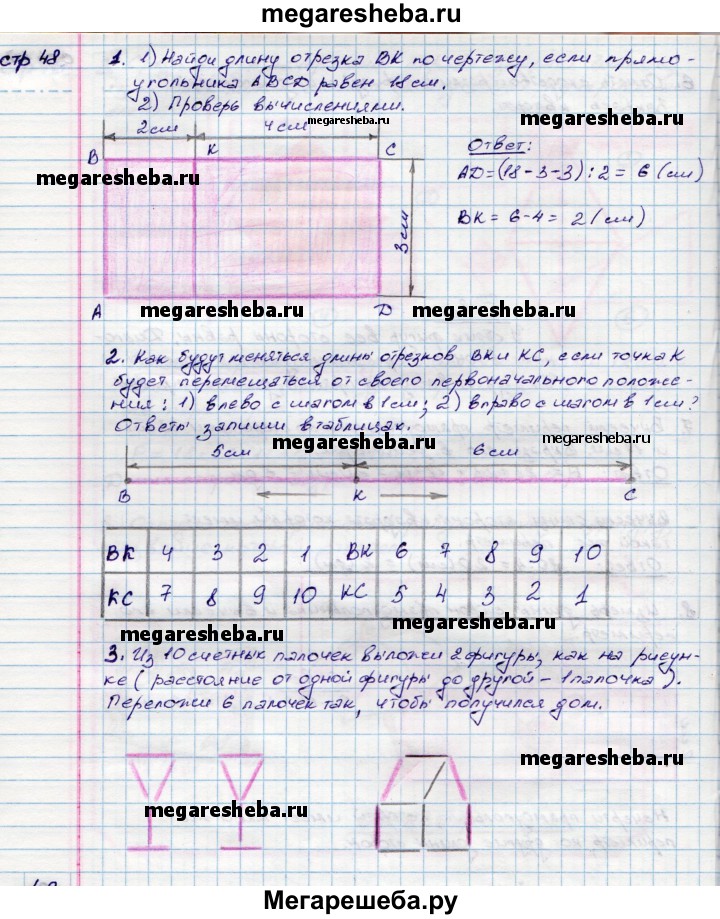 megaresheba.ru
стр 48
1. 1) Найди длину отрезка ВК по чертежу, если прямо-
угольника ABCD равен 18 см.
2) Проверь вычислениями.
megaresheba.ru
2см 4см megaresheba.ru
B K C
Ответ:
megaresheba.ru
AD=(18-3-3):2= 6 (см)
3см
BK = 6-4 = 2 (см)
A D
megaresheba.ru megaresheba.ru
2. Как будут меняться длины отрезков ВК и КС, если точка К
будет перемещаться от своего первоначального положе-
ния: 1) влево с шагом в 1см; 2) вправо с шагом в 1см?
Ответы запиши в таблицах.
megaresheba.ru megaresheba.ru
5см 6см
B K C
ВК 4 3 2 1 ВК 6 7 8 9 10
КС 7 8 9 10 КС 5 4 3 2 1
megaresheba.ru megaresheba.ru
3. Из 10 счетных палочек выложи 2 фигуры, как на рисун-
ке (расстояние от одной фигуры до другой - 1 палочка).
Переложи 6 палочек так, чтобы получился дом.
megaresheba.ru
megaresheba.ru
Мегарешеба.ру